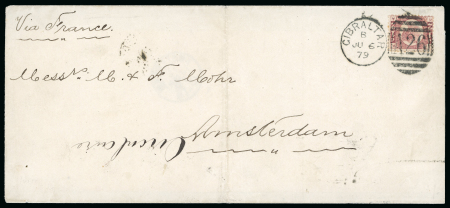 Via France.
GIBRALTAR
B
JU 6
79
A26
Messrs. M. & F. Mohr
Amsterdam